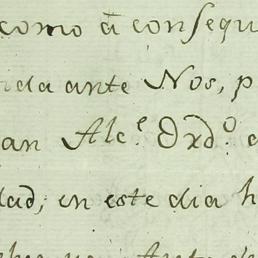 como á consequ
da ante Nos, p
an Alc.e Ord.o
dad, en este dia h